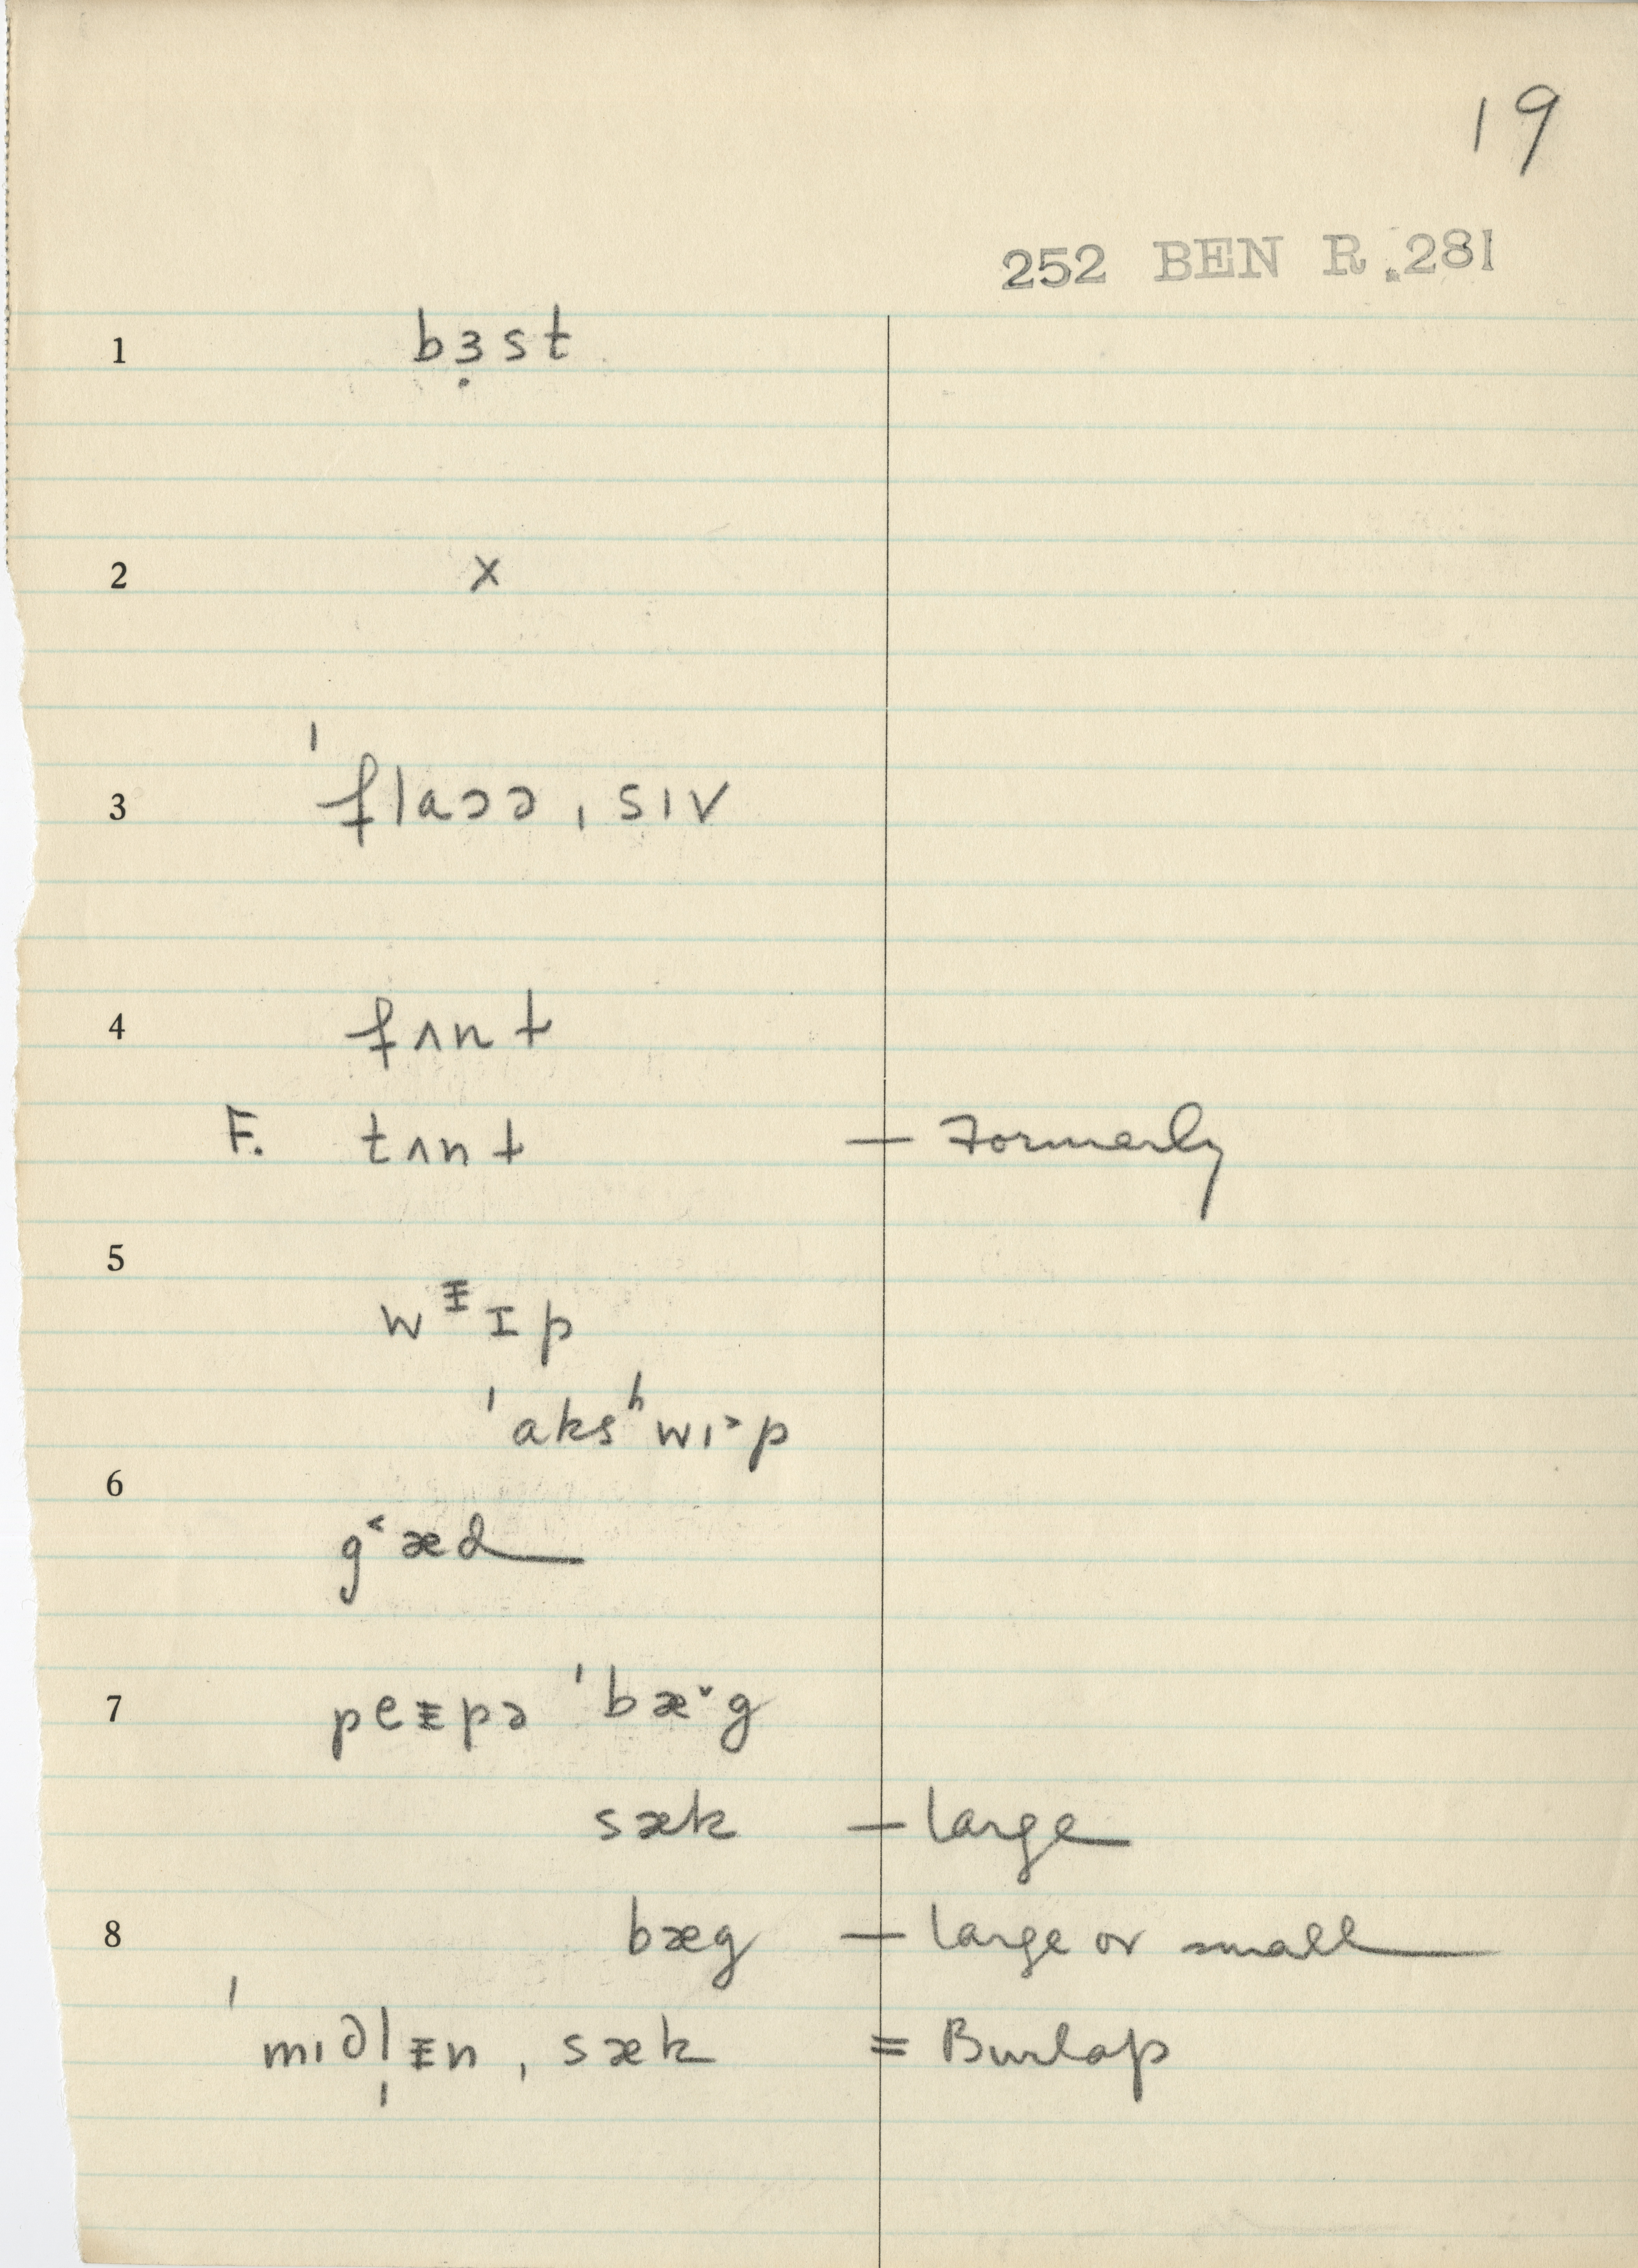 19
252 BEN R.281
1 bɜ̣st
2 x
3 ˈflaɔə ˌsɪv
4 fʌnt
F. tʌnt — Formerly
5
wᵻɪp
ˈaksʰwɪ˃p
6
g˂æd
7 peᵻpə ˈbæ˅g
sæk — large
8 bæg — large or small
ˈmɪdl̩ᵻn ˌsæk = Burlap